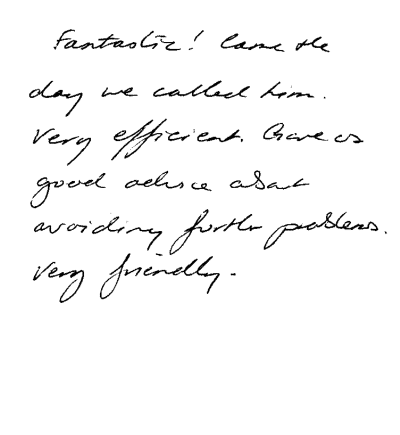 Fantastic! Came the
day we called him.
Very efficient. Gave us
good advice about
avoiding further problems.
Very friendly.